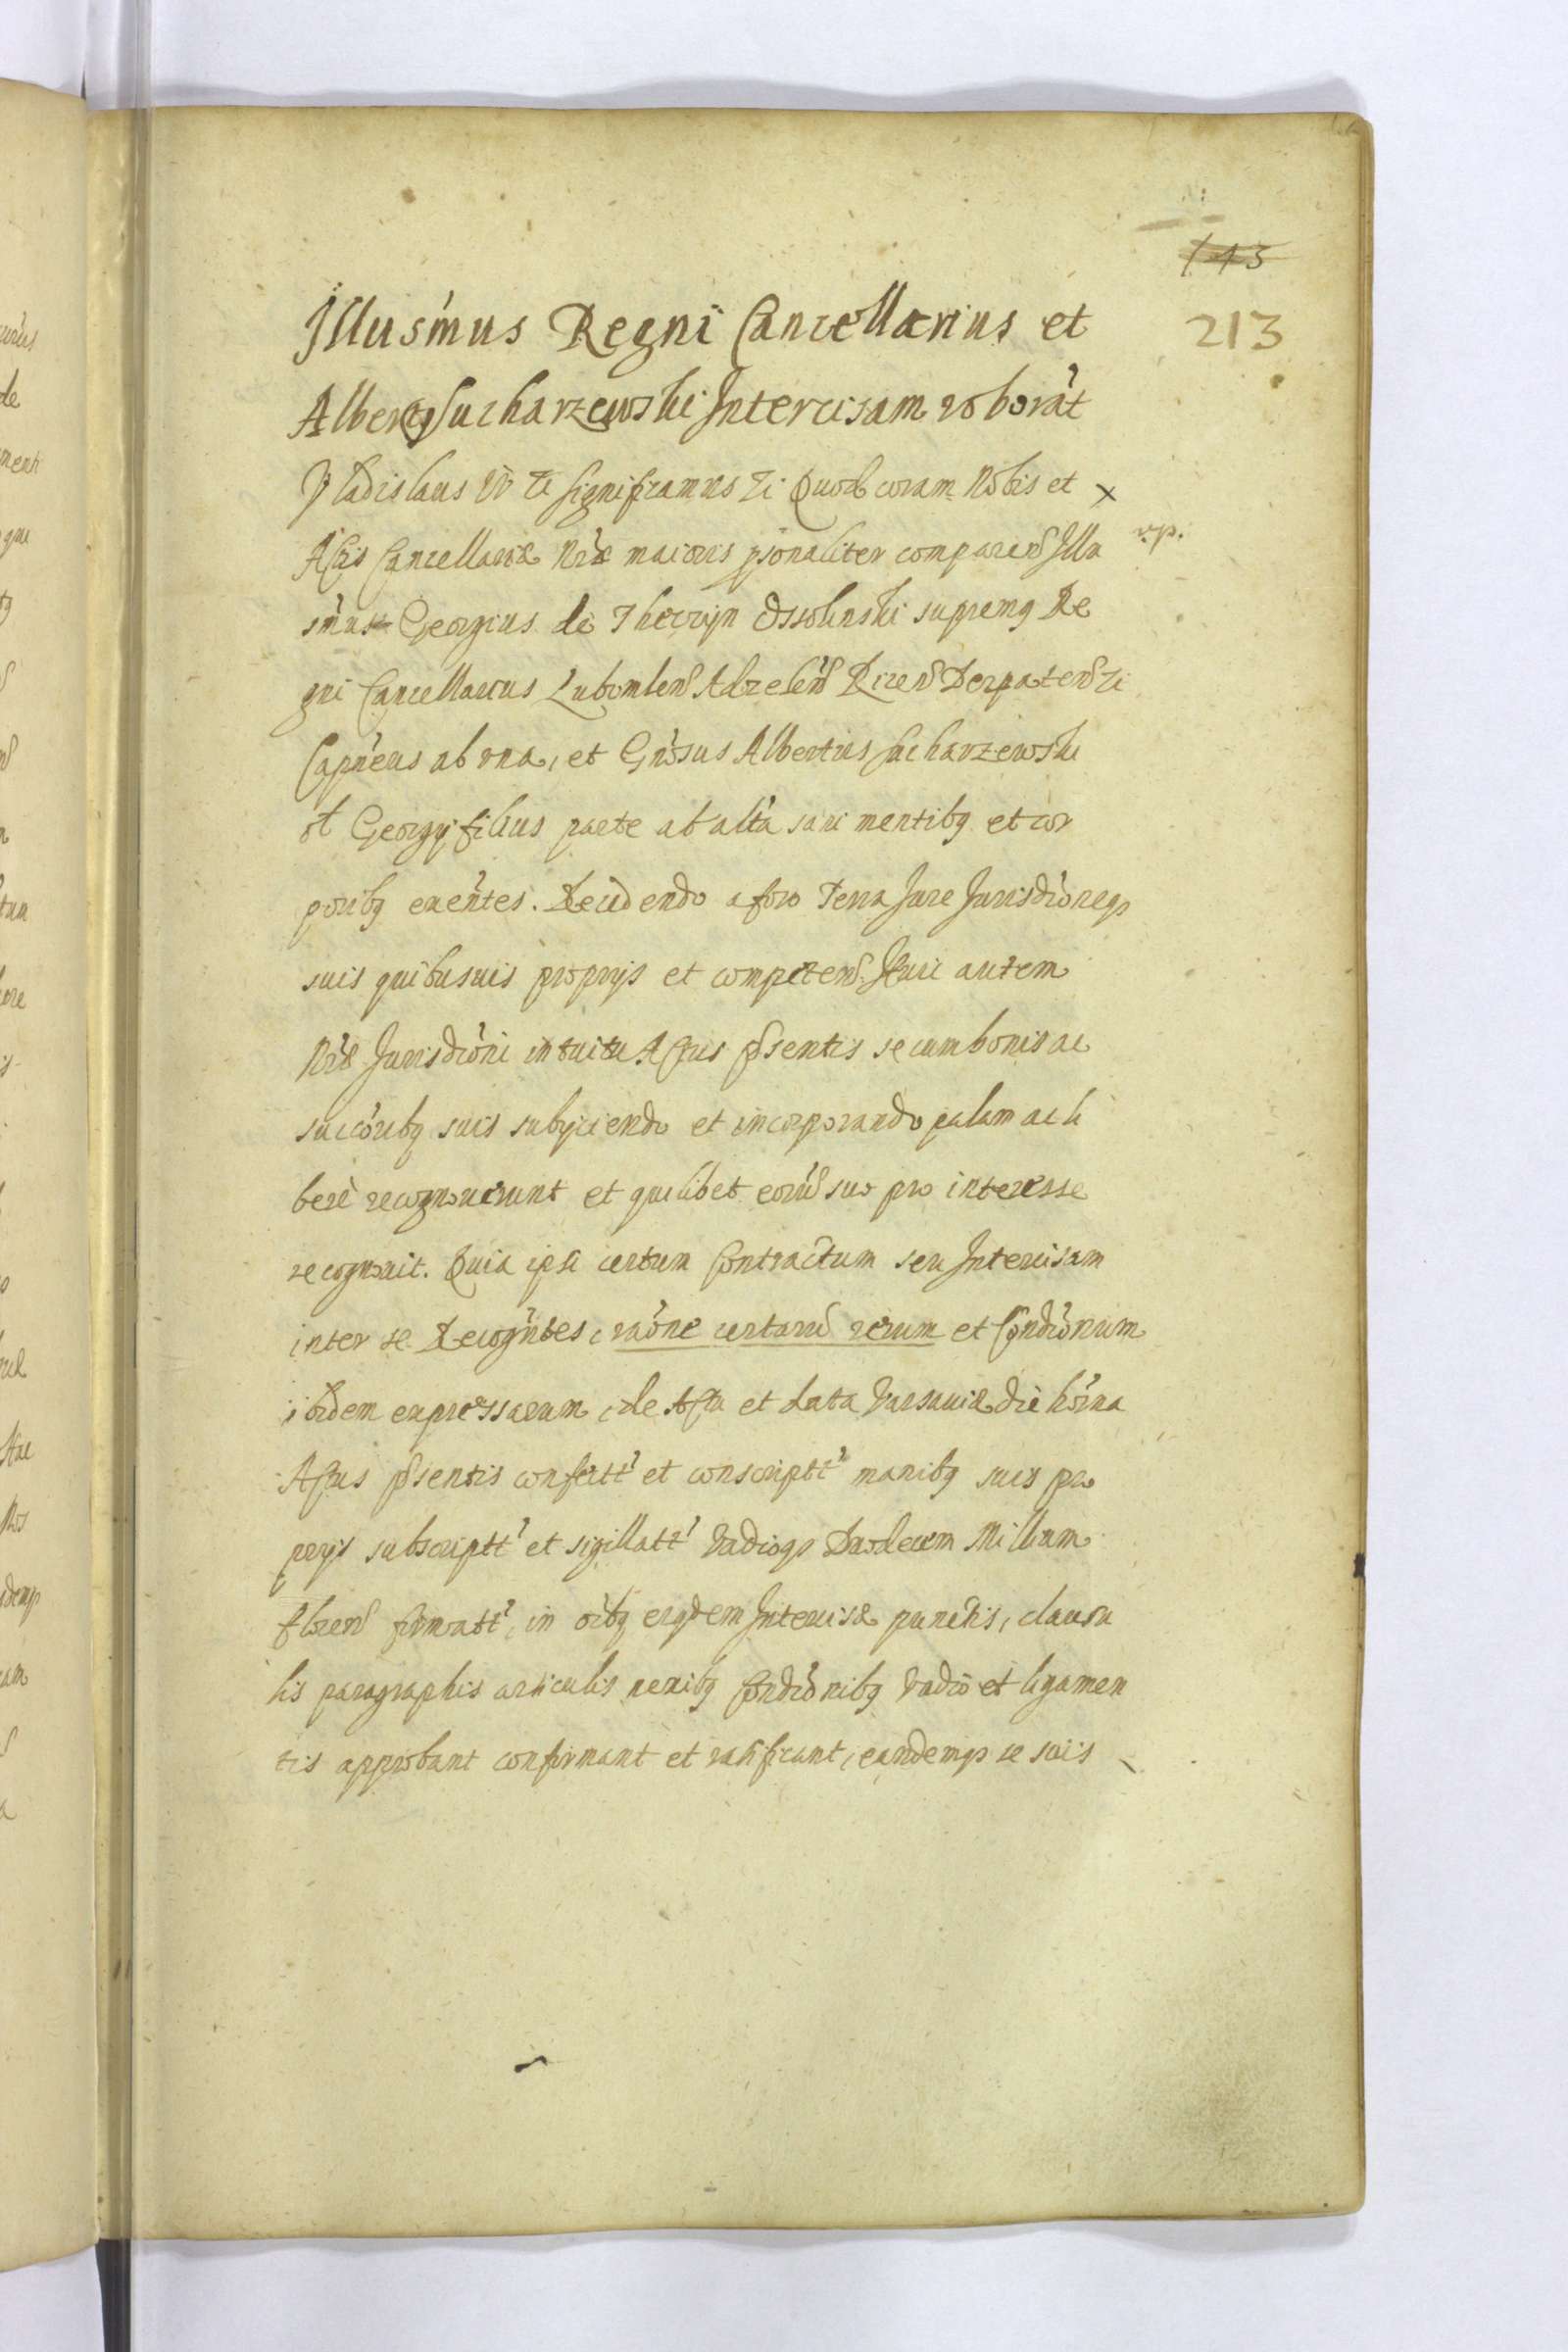 143
213
Illus̃mus Regni Cancellarius et
Albertꝰ Sucharzewski Intercisam roborãt
Vladislaus IV etc Significamus etc Quod coram Nobis et
r.p.
Actis Cancellariæ Nr̃æ maioris psonaliter comparens Illu
sm̃us Georgius de Thęczyn Ossolinski supremꝰ Re
gni Cancellarius Lubomlens Adzelens Ricens Derpatens etc
Capñeus ab vna, et Gnr̃osus Albertus Sucharzewski
ol Georgij filius parte ab altã sani mentibꝰ et cor
poribꝰ exen̄tes. Recedendo a foro Terra Jure Jurisdiõneqꝫ
suis quibusuis proprijs et competens. Huic autem
Nr̃æ Jurisdiõni intuitu Actus p̃sentis se cum bonis ac
succõribꝰ suis subijciendo et incorporando palam ac li
berè recognouerunt et quilibet eorũ suo pro interesse
recognouit. Quia ipsi certum Contractum seu Intercisam
inter se Recogñtes, raõne certarũ rerum et Condiõnum
ibidem expressarum, de Actu et data Varsauiæ die hõrna
Actus p̃sentis confectt̃ et conscriptt̃ manibꝰ suis pro
prijs subscriptt̃ et sigillatt̃ Vadioqꝫ Duodecem Millium
flrens firmatt̃, in oĩbꝰ eiꝰdem Intercisæ punctis, clausu
lis paragraphis articulis nexibꝰ Condiõnibꝰ Vadiõ et ligamen
tis approbant confirmant et ratificant, eandemqꝫ se suis